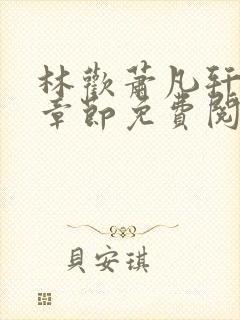 林歡蕭凡軒
章節免費閱
貝安琪